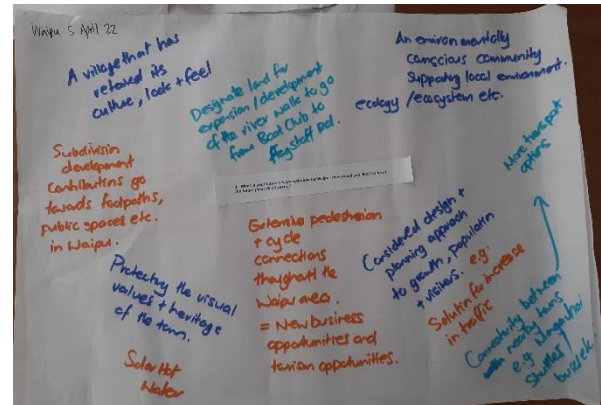 Waipu 5 April 22
A village that has
retained its
culture, look + feel
Designate land for
expansion / development
of the river walk to go
from Boat Club to
flagstaff Rd.
An environmentally
conscious community
Supporting local environment.
ecology / ecosystem etc.
More transport
options
Subdivision
development
contributions go
towards footpaths,
public spaces etc.
in Waipu.
Extensive pedestrian
+ cycle
connections
throughout the
Waipu area.
= New business
opportunities and
tourism opportunities.
Considered design +
planning approach
to growth, population
+ visitors. e.g.
Solution for increase
in traffic
Protecting the visual
values + heritage
of the town.
Solar Hot
Water
Connectivity between
nearby towns
e.g. Mangawhai
Shuttles /
buses etc.